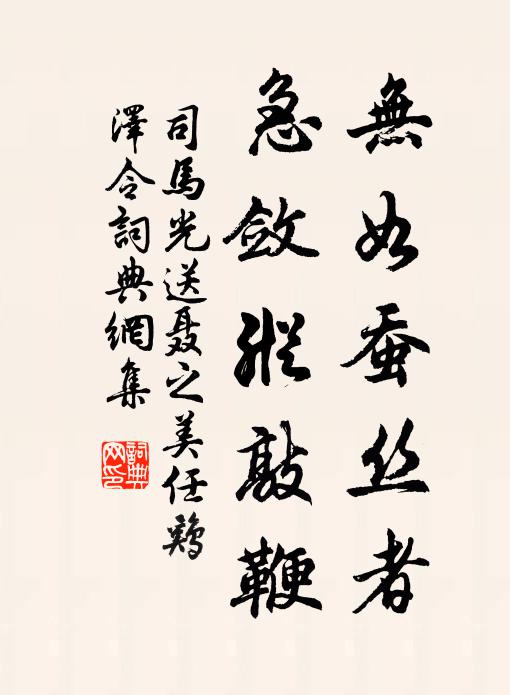 無如蚕丝者
急敛縱敲鞭
司馬光送聂之美任鷄
澤令詞典網集
詞典网印